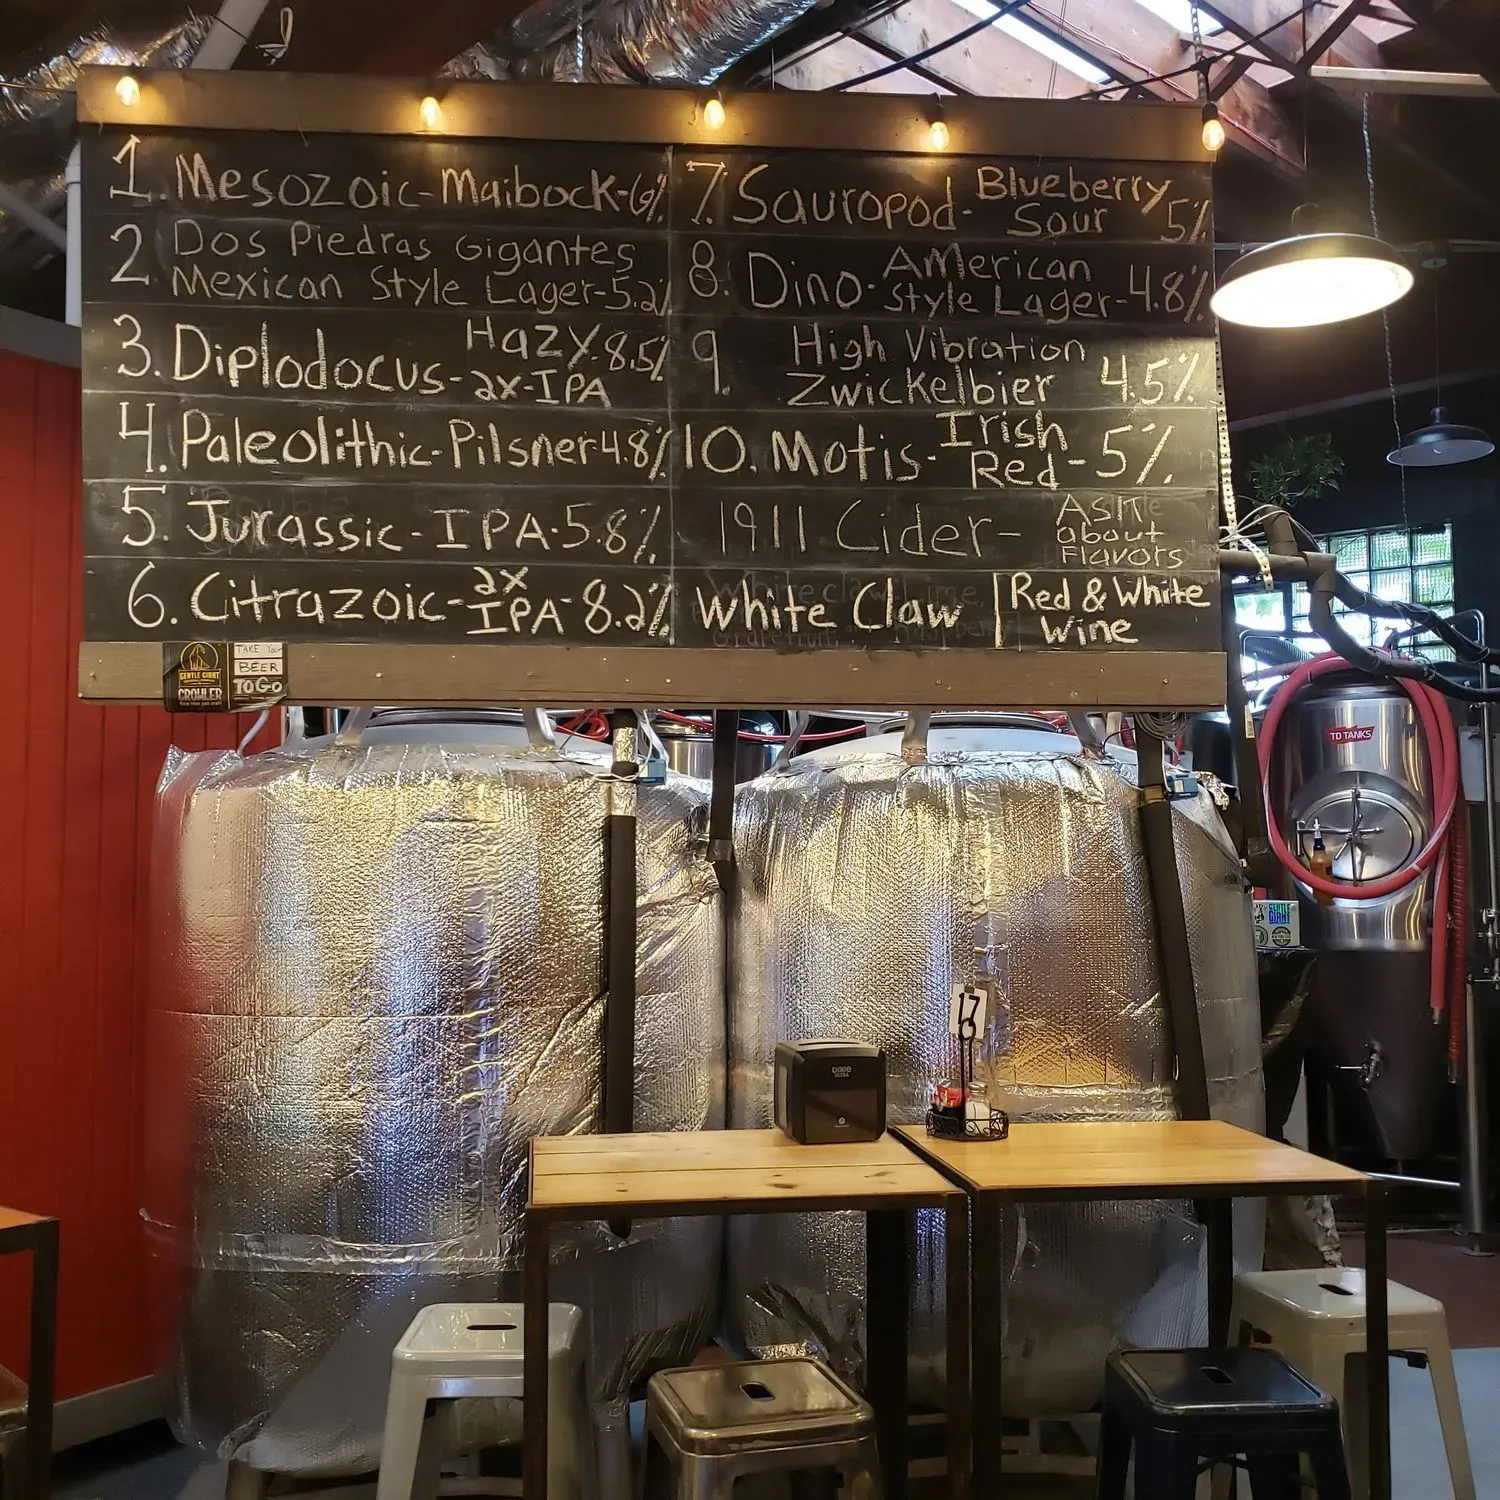 1. Mesozoic-Maibock-6%
2. Dos Piedras Gigantes
Mexican Style Lager-5.2%
3. Diplodocus- Hazy 8.5%
2x-IPA
4. Paleolithic-Pilsner 4.8%
5. Jurassic-IPA-5.8%
6. Citrazoic- 2x
IPA-8.2%
7. Sauropod- Blueberry
Sour 5%
8. Dino- American
Style Lager-4.8%
9. High Vibration
Zwickelbier 4.5%
10. Motis- Irish
Red-5%
1911 Cider- Ask
about
Flavors
White Claw | Red & White
Wine
GENTLE GIANT
CROWLER
TAKE Your
BEER
TO GO
TD TANKS
GENTLE
GIANT
17